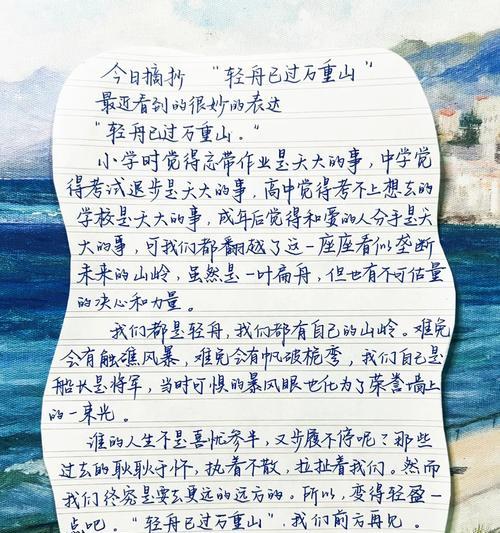 今日摘抄 “轻舟已过万重山”
最近看到的很妙的表达
“轻舟已过万重山。”
小学时觉得忘带作业是天大的事，中学觉
得考试退步是天大的事，高中觉得考不上想去的
学校是天大的事，成年后觉得和爱的人分手是天
大的事，可我们都翻越了这一座座看似垄断
未来的山岭，虽然是一叶扁舟，但也有不可估量
的决心和力量。
我们都是轻舟，我们都有自己的山岭。难免
会有触礁风暴，难免会有帆破桅弯，我们自己是
船长是将军，当时可惧的暴风眼也化为了荣誉墙上
的一束光。
谁的人生不是喜忧参半，又步履不停呢？那些
过去的耿耿于怀，执着不散，拉扯着我们。然而
我们终究是要去更远的远方的。所以，变得轻盈一
点吧。“轻舟已过万重山”，我们前方再见。